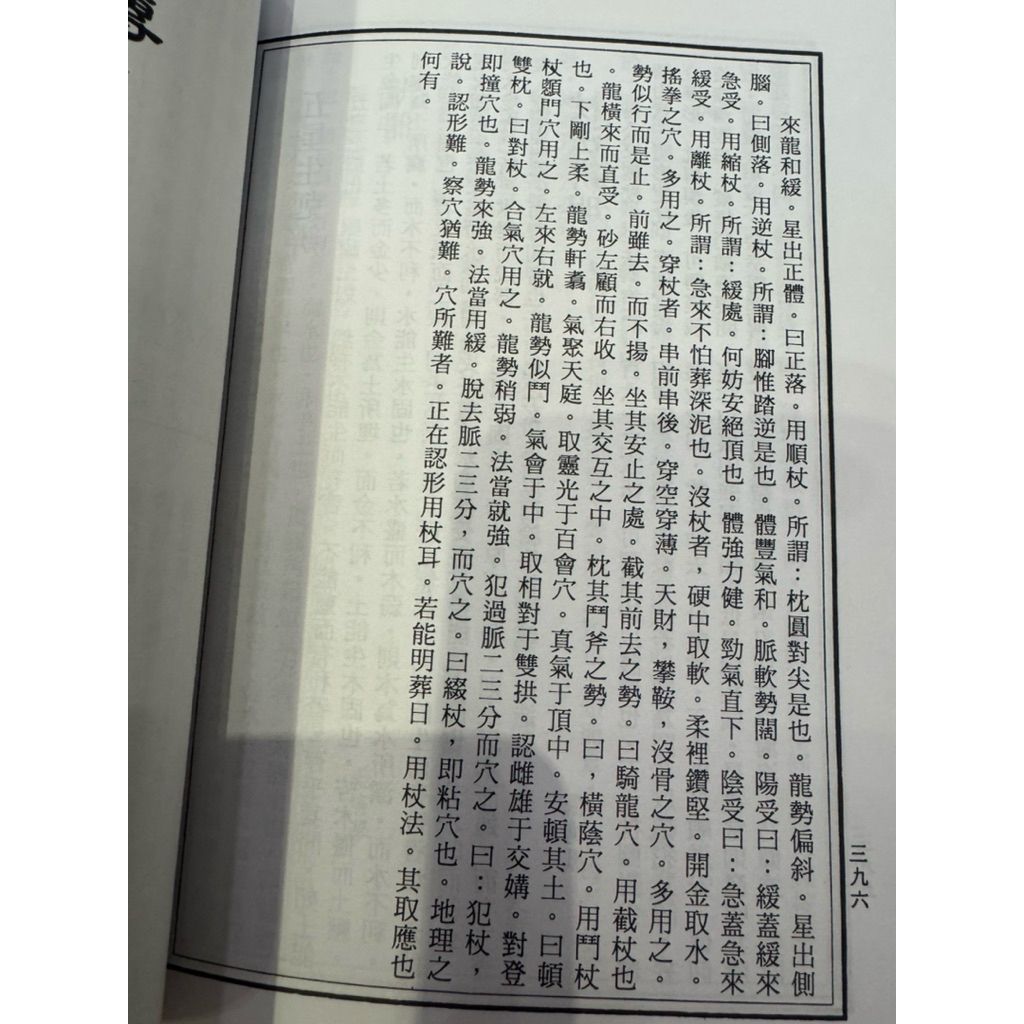 來龍和緩。星出正體。曰正落。用順杖。所謂：枕圓對尖是也。龍勢偏斜。星出側
腦。曰側落。用逆杖。所謂：腳惟踏逆是也。體豐氣和。脈軟勢闊。陽受曰：緩蓋緩來
急受。用縮杖。所謂：緩處。何妨安絕頂也。體強力健。勁氣直下。陰受曰：急蓋急來
緩受。用離杖。所謂：急來不怕葬深泥也。沒杖者，硬中取軟。柔裡鑽堅。開金取水。
搖拳之穴。多用之。穿杖者。串前串後。穿空穿薄。天財，攀鞍，沒骨之穴。多用之。
勢似行而是止。前雖去。而不揚。坐其安止之處。截其前去之勢。曰騎龍穴。用截杖也
。龍橫來而直受。砂左顧而右收。坐其交互之中。枕其鬥斧之勢。曰，橫蔭穴。用鬥杖
也。下剛上柔。龍勢軒翥。氣聚天庭。取靈光于百會穴。真氣于頂中。安頓其土。曰頓
杖顖門穴用之。左來右就。龍勢似鬥。氣會于中。取相對于雙拱。認雌雄于交媾。對登
雙枕。曰對杖。合氣穴用之。龍勢稍弱。法當就強。犯過脈二三分而穴之。曰：犯杖，
即撞穴也。龍勢來強。法當用緩。脫去脈二三分，而穴之。曰綴杖，即粘穴也。地理之
說。認形難。察穴猶難。穴所難者。正在認形用杖耳。若能明葬日。用杖法。其取應也
何有。
三九六